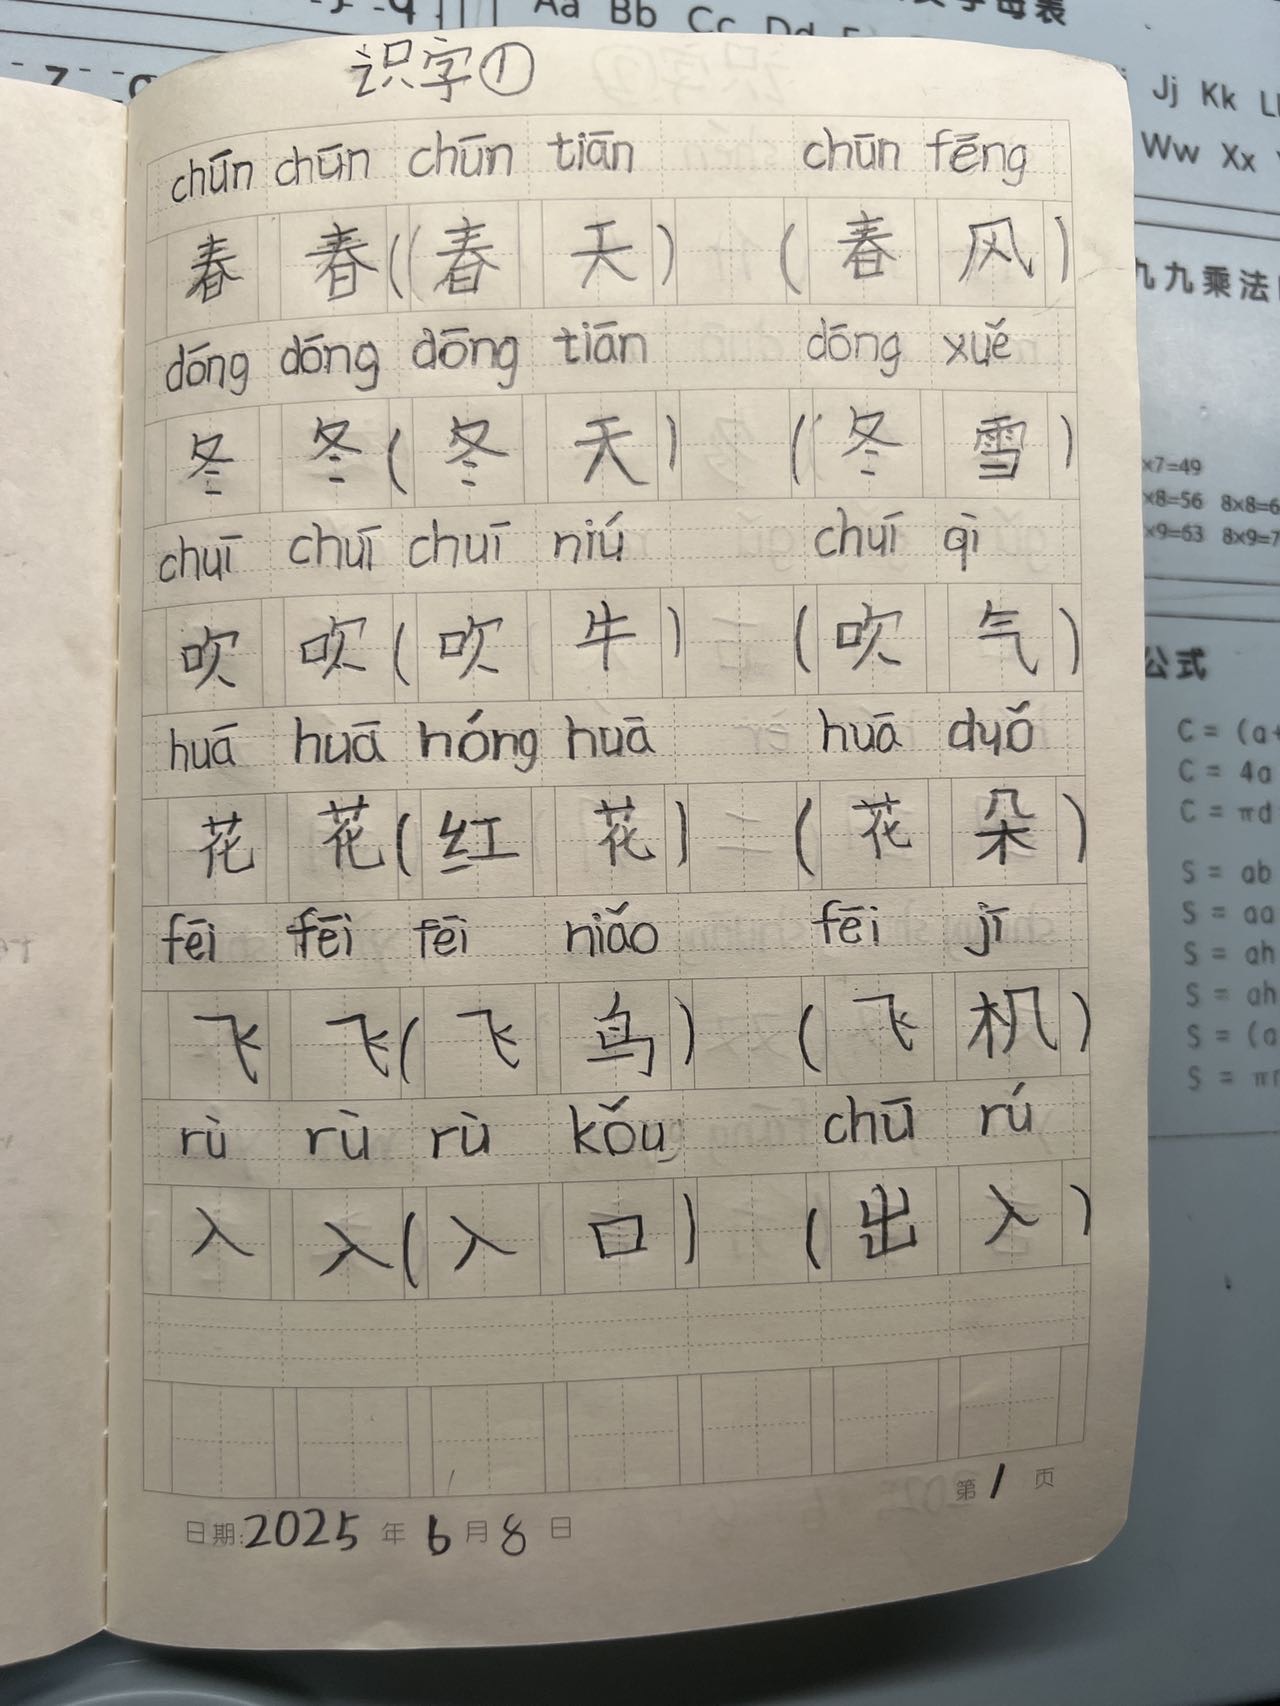 Aa Bb Cc Dd
字母表
Jj Kk
Ww Xx
识字①
chūn chūn chūn tiān chūn fēng
春 春 (春 天) (春 风)
dōng dōng dōng tiān dōng xuě
冬 冬 (冬 天) (冬 雪)
chuī chuī chuī niú chuī qì
吹 吹 (吹 牛) (吹 气)
huā huā hóng huā huā duǒ
花 花 (红 花) (花 朵)
fēi fēi fēi niǎo fēi jī
飞 飞 (飞 鸟) (飞 机)
rù rù rù kǒu chū rú
入 入 (入 口) (出 入)
第 1 页
日期:2025 年 6 月 8 日
九九乘法
x7=49
x8=56 8x8=6
x9=63 8x9=7
公式
C = (a+
C = 4a
C = πd
S = ab
S = aa
S = ah
S = ah
S = (a
S = πr